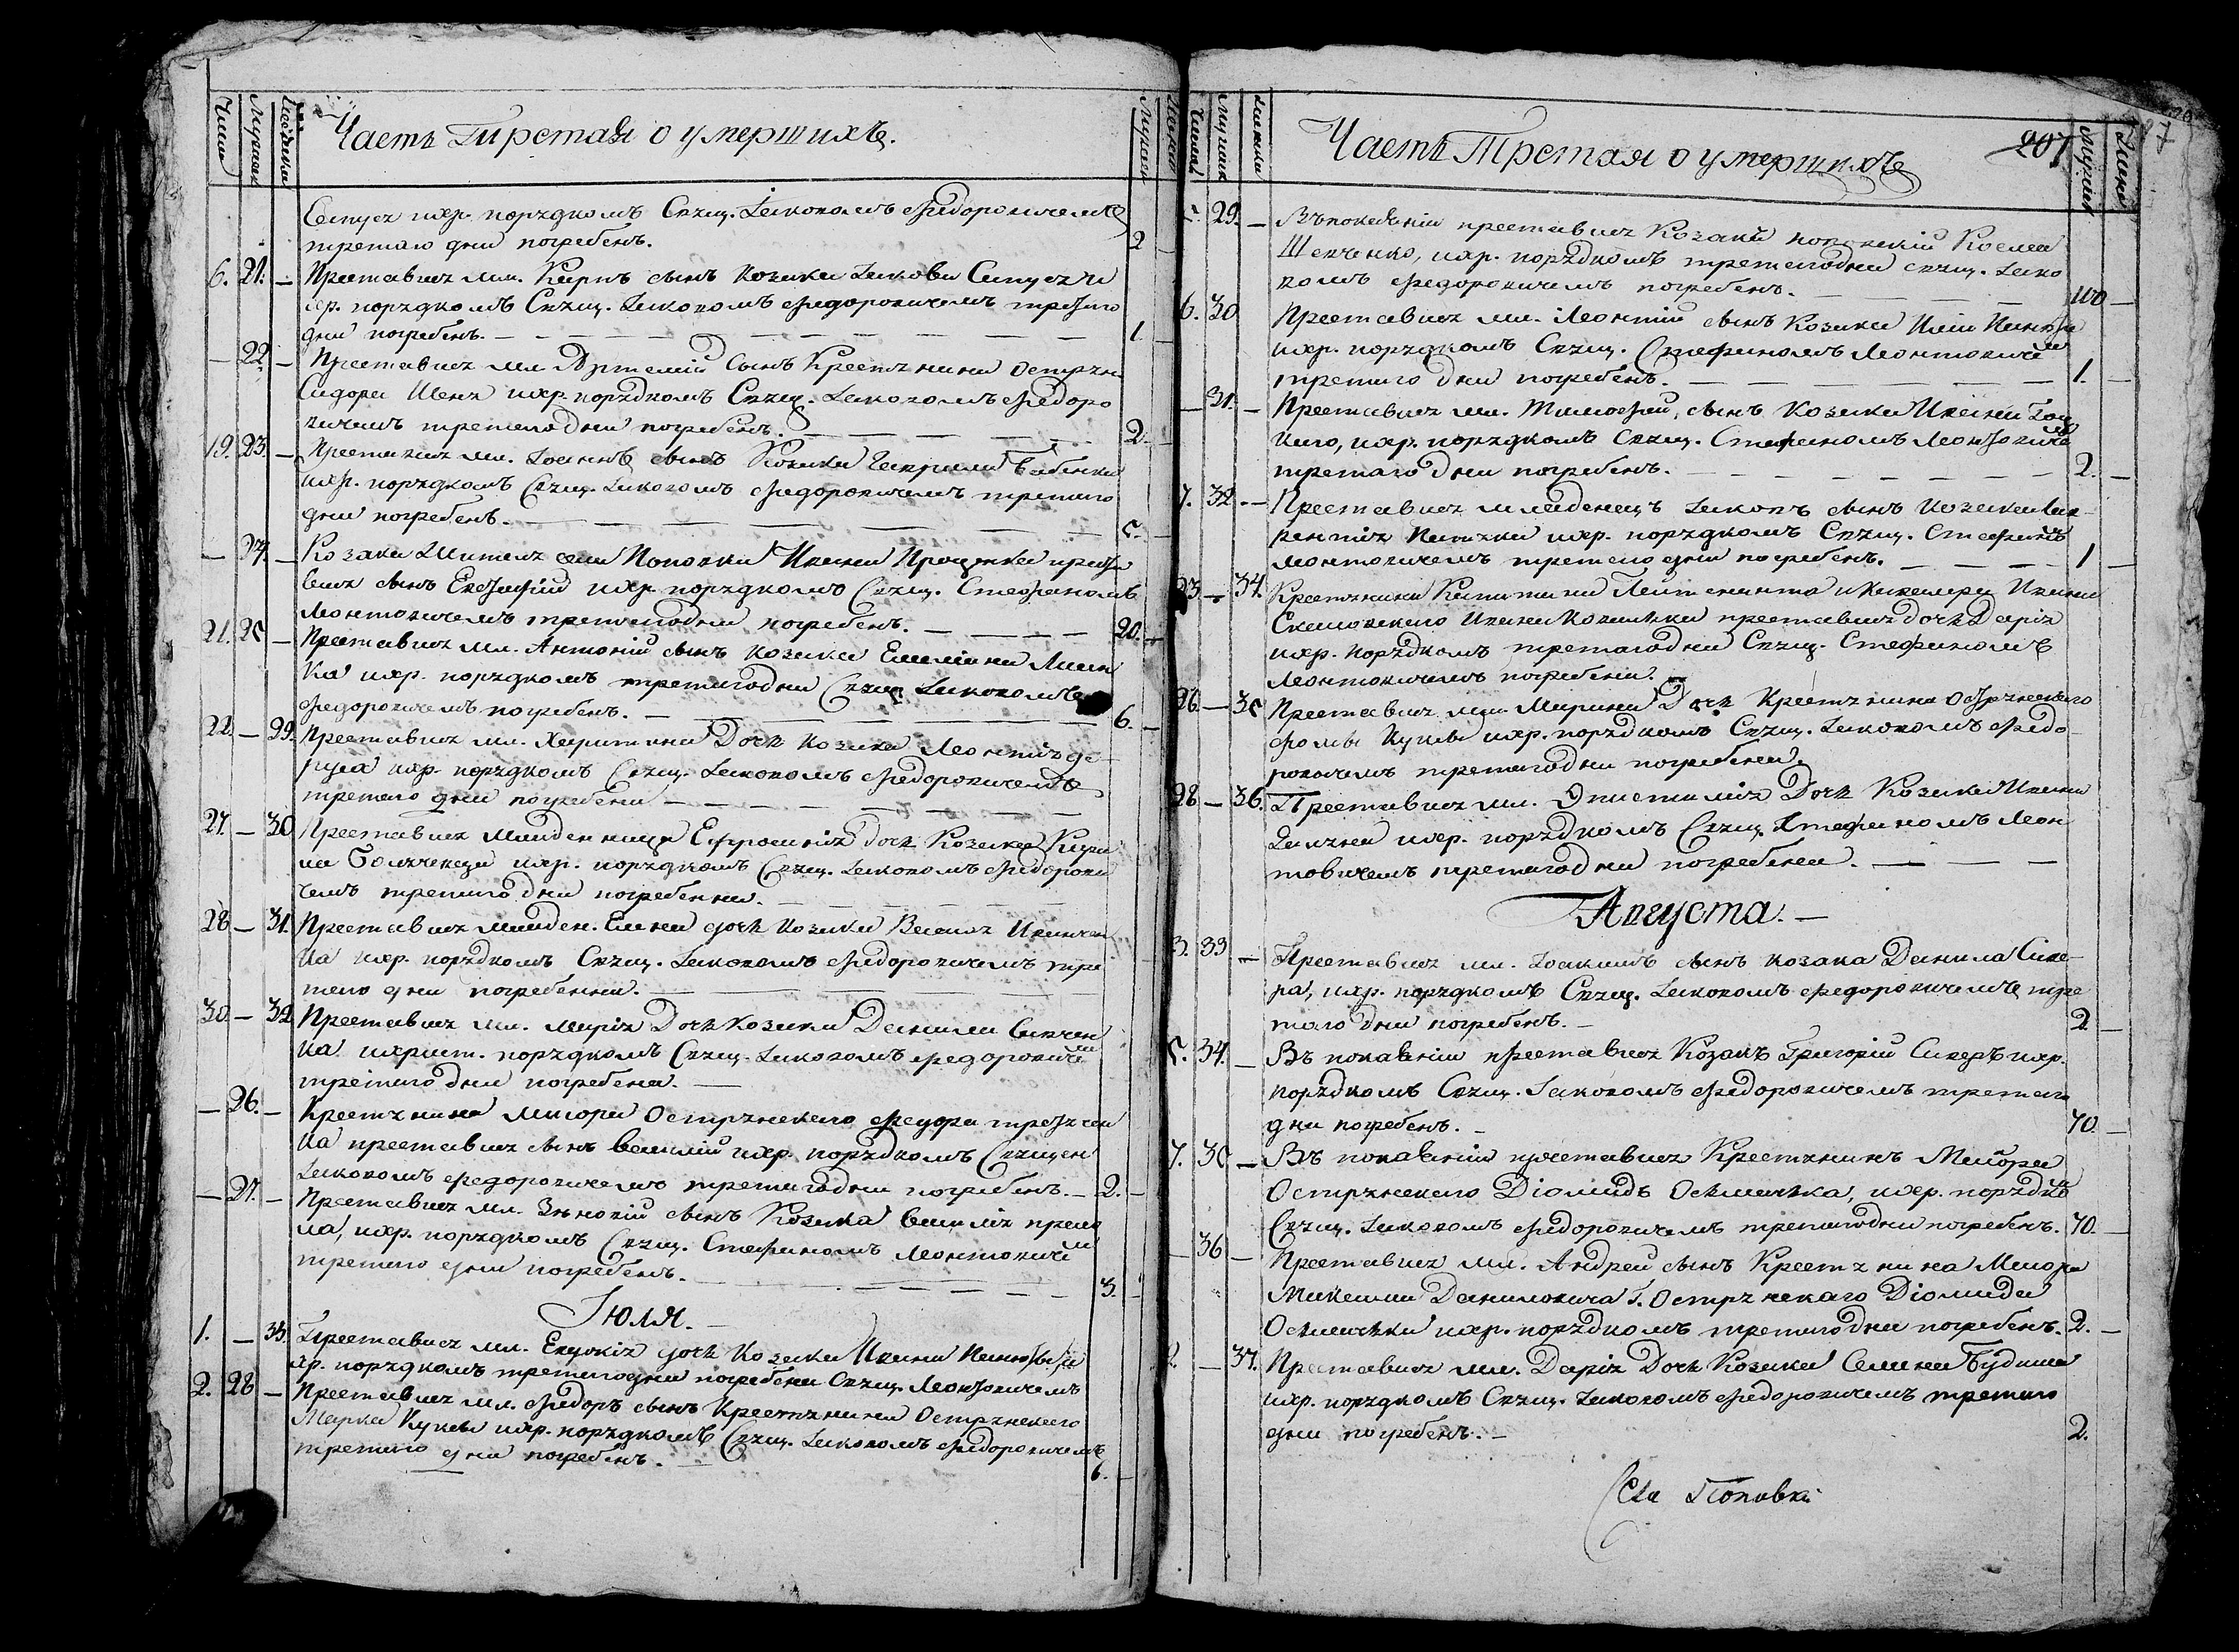 Часть Третая о умершихъ.
Числа
Мужеска
Женска
Синуся хр. порядкомъ Свящ. Іаковомъ Федоровичемъ
третаго дни погребенъ. 2
6. 21. – Преставися мл. Карпъ сынъ козака Іакова Синуся
хр. порядкомъ Свящ. Іаковомъ Федоровичемъ третаго
дни погребенъ. 1
– 22. – Преставися мл. Артемій сынъ Крестянина Острян.
Сидора хр. порядкомъ Свящ. Іаковомъ Федоро
вичемъ третагодни погребенъ. 2
19. 23. – Преставися мл. Іоаннъ сынъ Козака Гаврила Бабенка
хр. порядкомъ Свящ. Іаковомъ Федоровичемъ третаго
дни погребенъ. 5.
– 24. – Козака Жителя села Поповки Ивана Проценка преста
вися сынъ Евстафій хр. порядкомъ Свящ. Стефаномъ
Леонтовичемъ третагодни погребенъ. 20.
21. 25 – Преставися мл. Антоній сынъ козака Емеліана
ка хр. порядкомъ третагодни Свящ. Іаковомъ
Федоровичемъ погребенъ. 6.
22. – 29. Преставися мл. Харитина Дочь козака Леонтія
хр. порядкомъ Свящ. Іаковомъ Федоровичемъ
третаго дни погребена
27. – 30. Преставися младенница Ефросинія дочь Козака Кири
ла хр. порядкомъ Свящ. Іаковомъ Федорови
чемъ третаго дни погребенна.
28 – 31. Преставися младен. Елена дочь козака Василя Иванчен
ка хр. порядкомъ Свящ. Іаковомъ Федоровичемъ тре
таго дни погребенна.
30. – 32 Преставися мл. Марія Дочь козака Данила
ка христ. порядкомъ Свящ. Іаковомъ Федоровичем
третаго дни погребена.
– 26. – Крестянина Маіора Острянскаго Федора
ка преставися сынъ Василій хр. порядкомъ Священ
Іаковомъ Федоровичемъ третагодни погребенъ. – 2.
– 27. – Преставися мл. Зѣновій сынъ Козака Василя
ла, хр. порядкомъ Свящ. Стефаномъ Леонтовичем
третаго дни погребенъ. 3.
Іюля.
1. – 33. Преставися мл. Евдокія дочь Козака Ивана
хр. порядкомъ третагодни погребена Свящ. Леонтовичемъ
2. 28 – Преставися мл. Федоръ сынъ Крестянина Острянскаго
Марка Куквы хр. порядкомъ Свящ. Іаковомъ Федоровичемъ
третаго дни погребенъ. 6.
Часть Третая о умершихъ
207
Числа
Мужеска
Женска
5. 29. – Въ покаяніи преставися Козакъ поповскій Косма
Шевченко, хр. порядкомъ третагодни свящ. Іако
вомъ Федоровичемъ погребенъ. 110
6. 30 Преставися мл. Леонтій сынъ Козака Иліи
хр. порядкомъ Свящ. Стефаномъ Леонтовичем
третаго дни погребенъ. 1.
– 31. – Преставися мл. Тимофей, сынъ Козака Ивана
каго, хр. порядкомъ Свящ. Стефаномъ Леонтовичемъ
третаго дни погребенъ. 2.
7. 32 – Преставися младенецъ Іаковъ сынъ козака Лав-
рентія хр. порядкомъ Свящ. Стефаномъ
Леонтовичемъ третаго дни погребенъ. 1
23 – 34. Крестянина Капитана Лейтенанта и Кавалера Ивана
Ивана преставися дочь Дарія
хр. порядкомъ третагодни Свящ. Стефаномъ
Леонтовичемъ погребена.
26. – 35 Преставися мл. Марина Дочь Крестянина Острянскаго
Фомы Куквы хр. порядкомъ Свящ. Іаковомъ Федо-
ровичемъ третагодни погребена.
28 – 36. Преставися мл. Епистимія Дочь Козака Ивана
хр. порядкомъ Свящ. Стефаномъ Леон
товичемъ третагодни погребена.
Августа.
3. 33 – Преставися мл. Іоакимъ сынъ козака Данила Сике-
ра, хр. порядкомъ Свящ. Іаковомъ Федоровичемъ тре
таго дни погребенъ. 2.
5. 34. – Въ покаяніи преставися Козакъ Григорій Сикеръ хр.
порядкомъ Свящ. Іаковомъ Федоровичемъ третаго
дни погребенъ. 70.
7. 35 – Въ покаяніи преставися Крестянинъ Маіора
Острянскаго Діомидъ Осмачка, хр. порядко
Свящ. Іаковомъ Федоровичемъ третагодни погребенъ. 70.
– 36 – Преставися мл. Андрей сынъ Крестянина Маіора
Максима Даниловича Г. Острянскаго Діомида
Осмачки хр. порядкомъ третагодни погребенъ. 2.
– 37. Преставися мл. Дарія Дочь Козака Семена
хр. порядкомъ Свящ. Іаковомъ Федоровичемъ третаго
дни погребенъ. 2.
Села Поповки